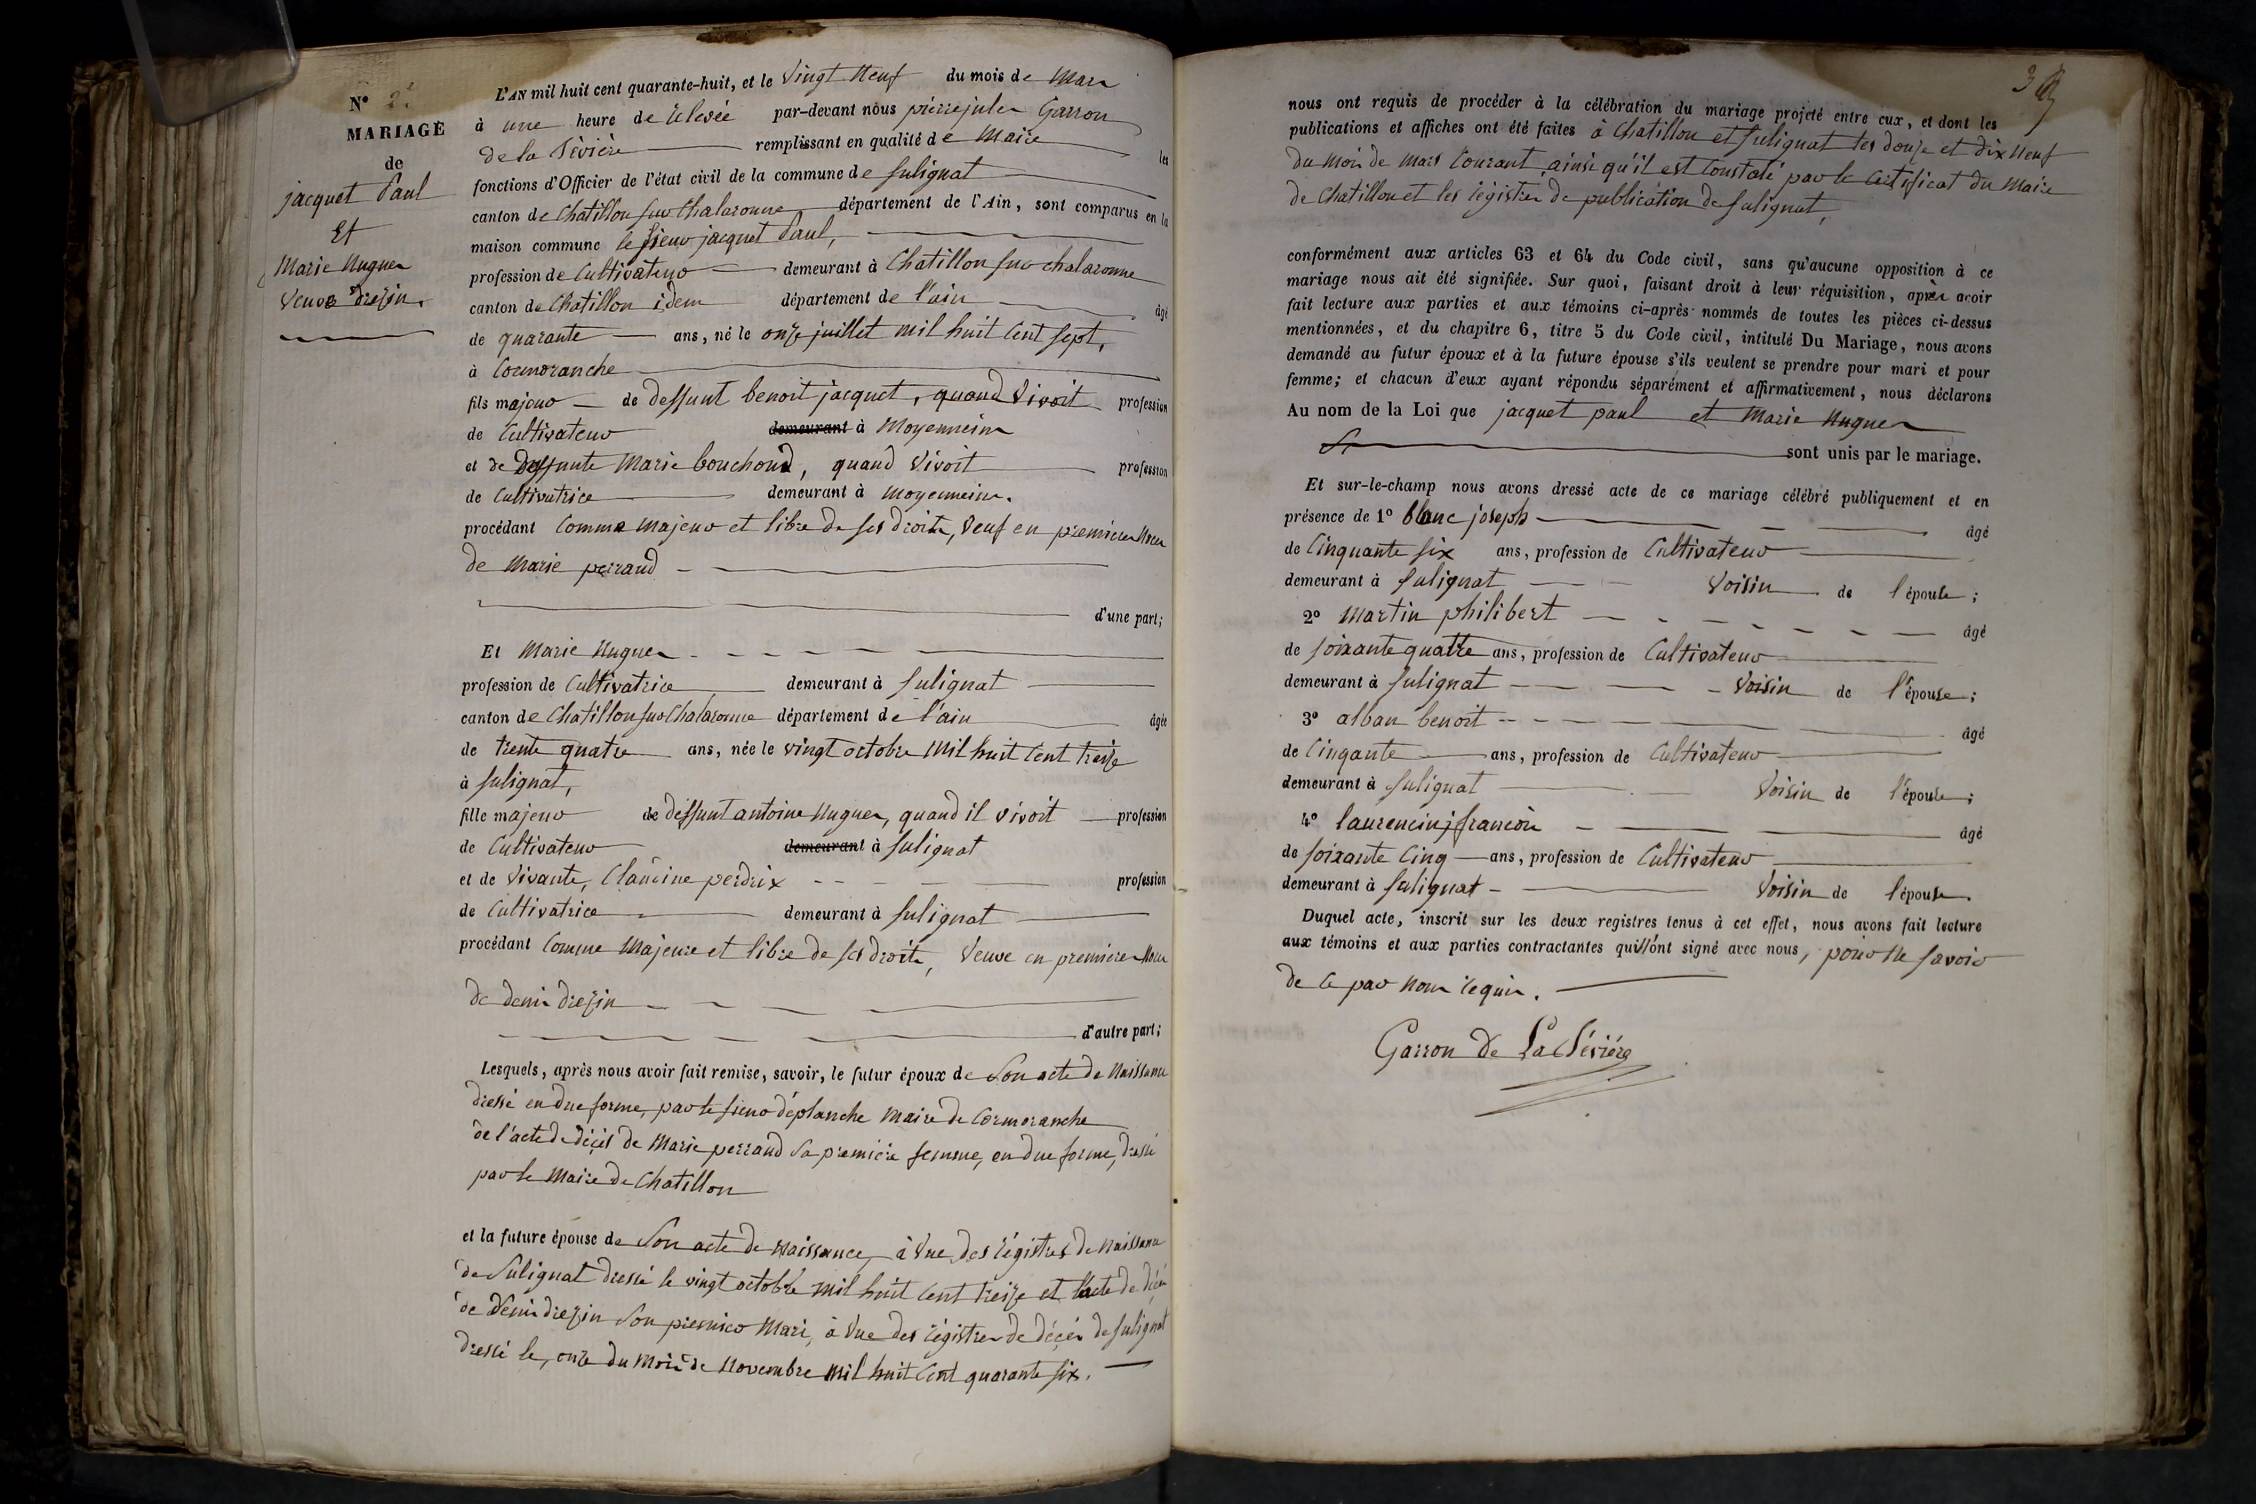 N° 2.
MARIAGE
de
jacquet Paul
Et
Marie Nugues
veuve drezin.
L'AN mil huit cent quarante-huit, et le vingt neuf du mois de Mars
à une heure de relevée par-devant nous pierre jules Garron
de la Sévière remplissant en qualité de Maire les
fonctions d'Officier de l'état civil de la commune de Sulignat
canton de Chatillon sur Chalaronne département de l'Ain, sont comparus en la
maison commune le sieur jacquet Paul,
profession de Cultivateur demeurant à Chatillon sur chalaronne
canton de Chatillon idem département de l'ain âgé
de quarante ans, né le onze juillet mil huit cent sept,
à Cormoranche
fils majeur de deffunt benoit jacquet, quand vivoit profession
de Cultivateur demeurant à Moyenneins
et de deffunte Marie bouchoud, quand vivoit profession
de Cultivatrice demeurant à moyenneins.
procédant comme majeur et libre de ses droits, veuf en premieres Noces
de Marie perraud
d'une part;
Et Marie Nugues
profession de Cultivatrice demeurant à Sulignat
canton de Chatillon sur Chalaronne département de l'ain âgée
de trente quatre ans, née le vingt octobre Mil huit cent treize
à Sulignat,
fille majeur de deffunt antoine Nugues, quand il vivoit profession
de Cultivateur demeurant à Sulignat
et de vivante, Claudine perdrix profession
de Cultivatrice demeurant à Sulignat
procédant Comme Majeure et libre de ses droits, veuve en premieres Noces
de denis drezin
d'autre part;
Lesquels, après nous avoir fait remise, savoir, le futur époux de Son acte de Naissance
dressé en due forme, par le sieur déplanche Maire de Cormoranche
de l'acte de décès de Marie perraud Sa première femme, en due forme, dressé
par le Maire de Chatillon
et la future épouse de Son acte de Naissance, à vue des régistres de Naissance
de Sulignat dressé le vingt octobre mil huit cent treize et l'acte de décès
de denis drezin Son premier Mari, à vue des régistres de décés de Sulignat
dressé le, onze du mois de Novembre mil huit Cent quarante six.
nous ont requis de procéder à la célébration du mariage projeté entre eux, et dont les
publications et affiches ont été faites à Chatillon et Sulignat les douze et dix Neuf
du mois de mars Courant, ainsi qu'il est Constaté par le Certificat du Maire
de Chatillon et les régistres de publication de Sulignat,
conformément aux articles 63 et 64 du Code civil, sans qu'aucune opposition à ce
mariage nous ait été signifiée. Sur quoi, faisant droit à leur réquisition, après avoir
fait lecture aux parties et aux témoins ci-après nommés de toutes les pièces ci-dessus
mentionnées, et du chapitre 6, titre 5 du Code civil, intitulé Du Mariage, nous avons
demandé au futur époux et à la future épouse s'ils veulent se prendre pour mari et pour
femme; et chacun d'eux ayant répondu séparément et affirmativement, nous déclarons
Au nom de la Loi que jacquet paul et Marie Nugues
sont unis par le mariage.
Et sur-le-champ nous avons dressé acte de ce mariage célébré publiquement et en
présence de 1° blanc joseph âgé
de Cinquante six ans, profession de Cultivateur
demeurant à Sulignat Voisin de l'épouse;
2° Martin philibert âgé
de soixante quatre ans, profession de Cultivateur
demeurant à Sulignat Voisin de l'épouse;
3° alban benoit âgé
de Cinqante ans, profession de Cultivateur
demeurant à Sulignat Voisin de l'épouse;
4° laurencin francois âgé
de soixante Cinq ans, profession de Cultivateur
demeurant à Sulignat Voisin de l'épouse.
Duquel acte, inscrit sur les deux registres tenus à cet effet, nous avons fait lecture
aux témoins et aux parties contractantes qui n'ont signé avec nous, pour ne savoir
de ce par nous requis.
Garron de La Sévière